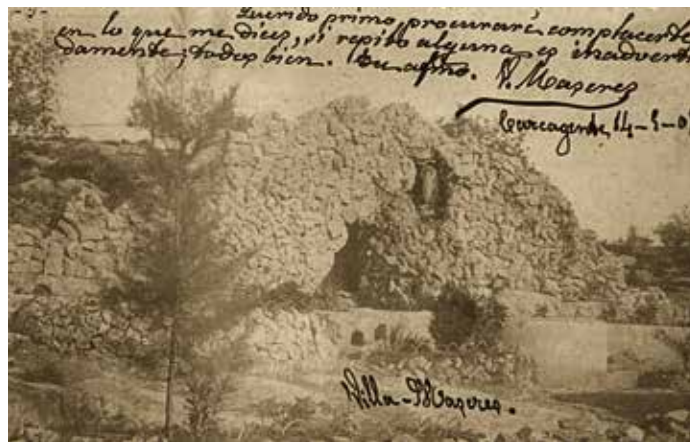 Querido primo, procuraré complacerte
en lo que me dices, si repito alguna es inadverti
damente; todos bien. Tu afmo. V. Maseres
Carcagente 14-5-0
Villa-Maseres.